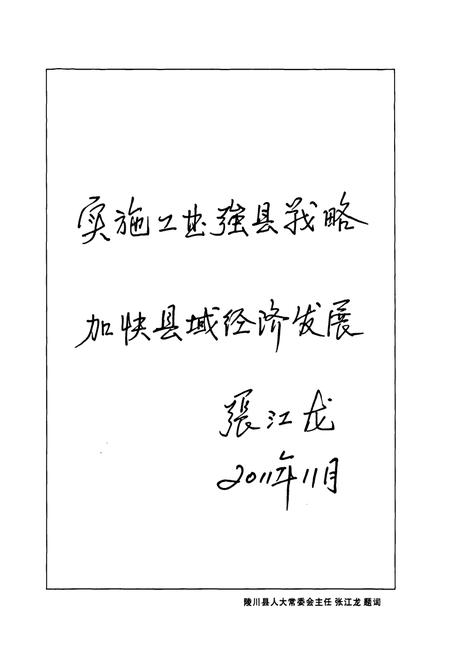 实施工业强县战略
加快县域经济发展
張江龙
2011年11月
陵川县人大常委会主任 张江龙 题词